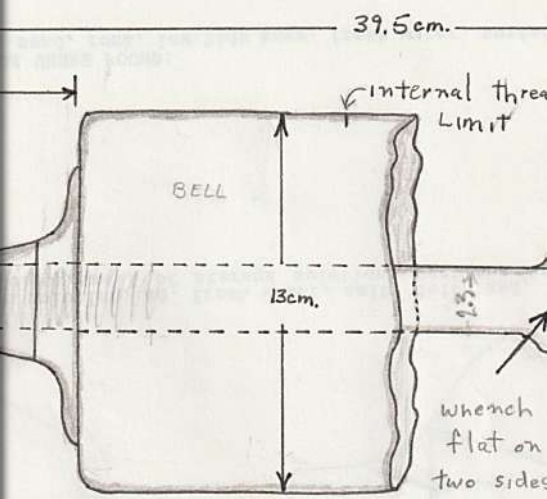 39.5cm.
internal threa
Limit
BELL
13cm.
whench
flat on
two sides